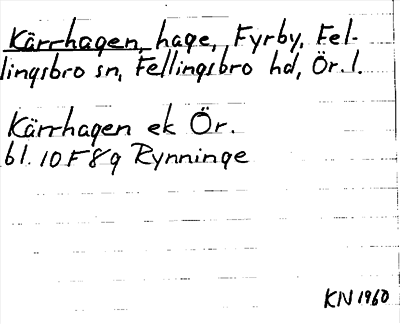 Kärrhagen, hage, Fyrby, Fel-
lingsbro sn, Fellingsbro hd, Ör. l.
Kärrhagen ek Ör.
bl. 10F8g Rynninge
KN 1960